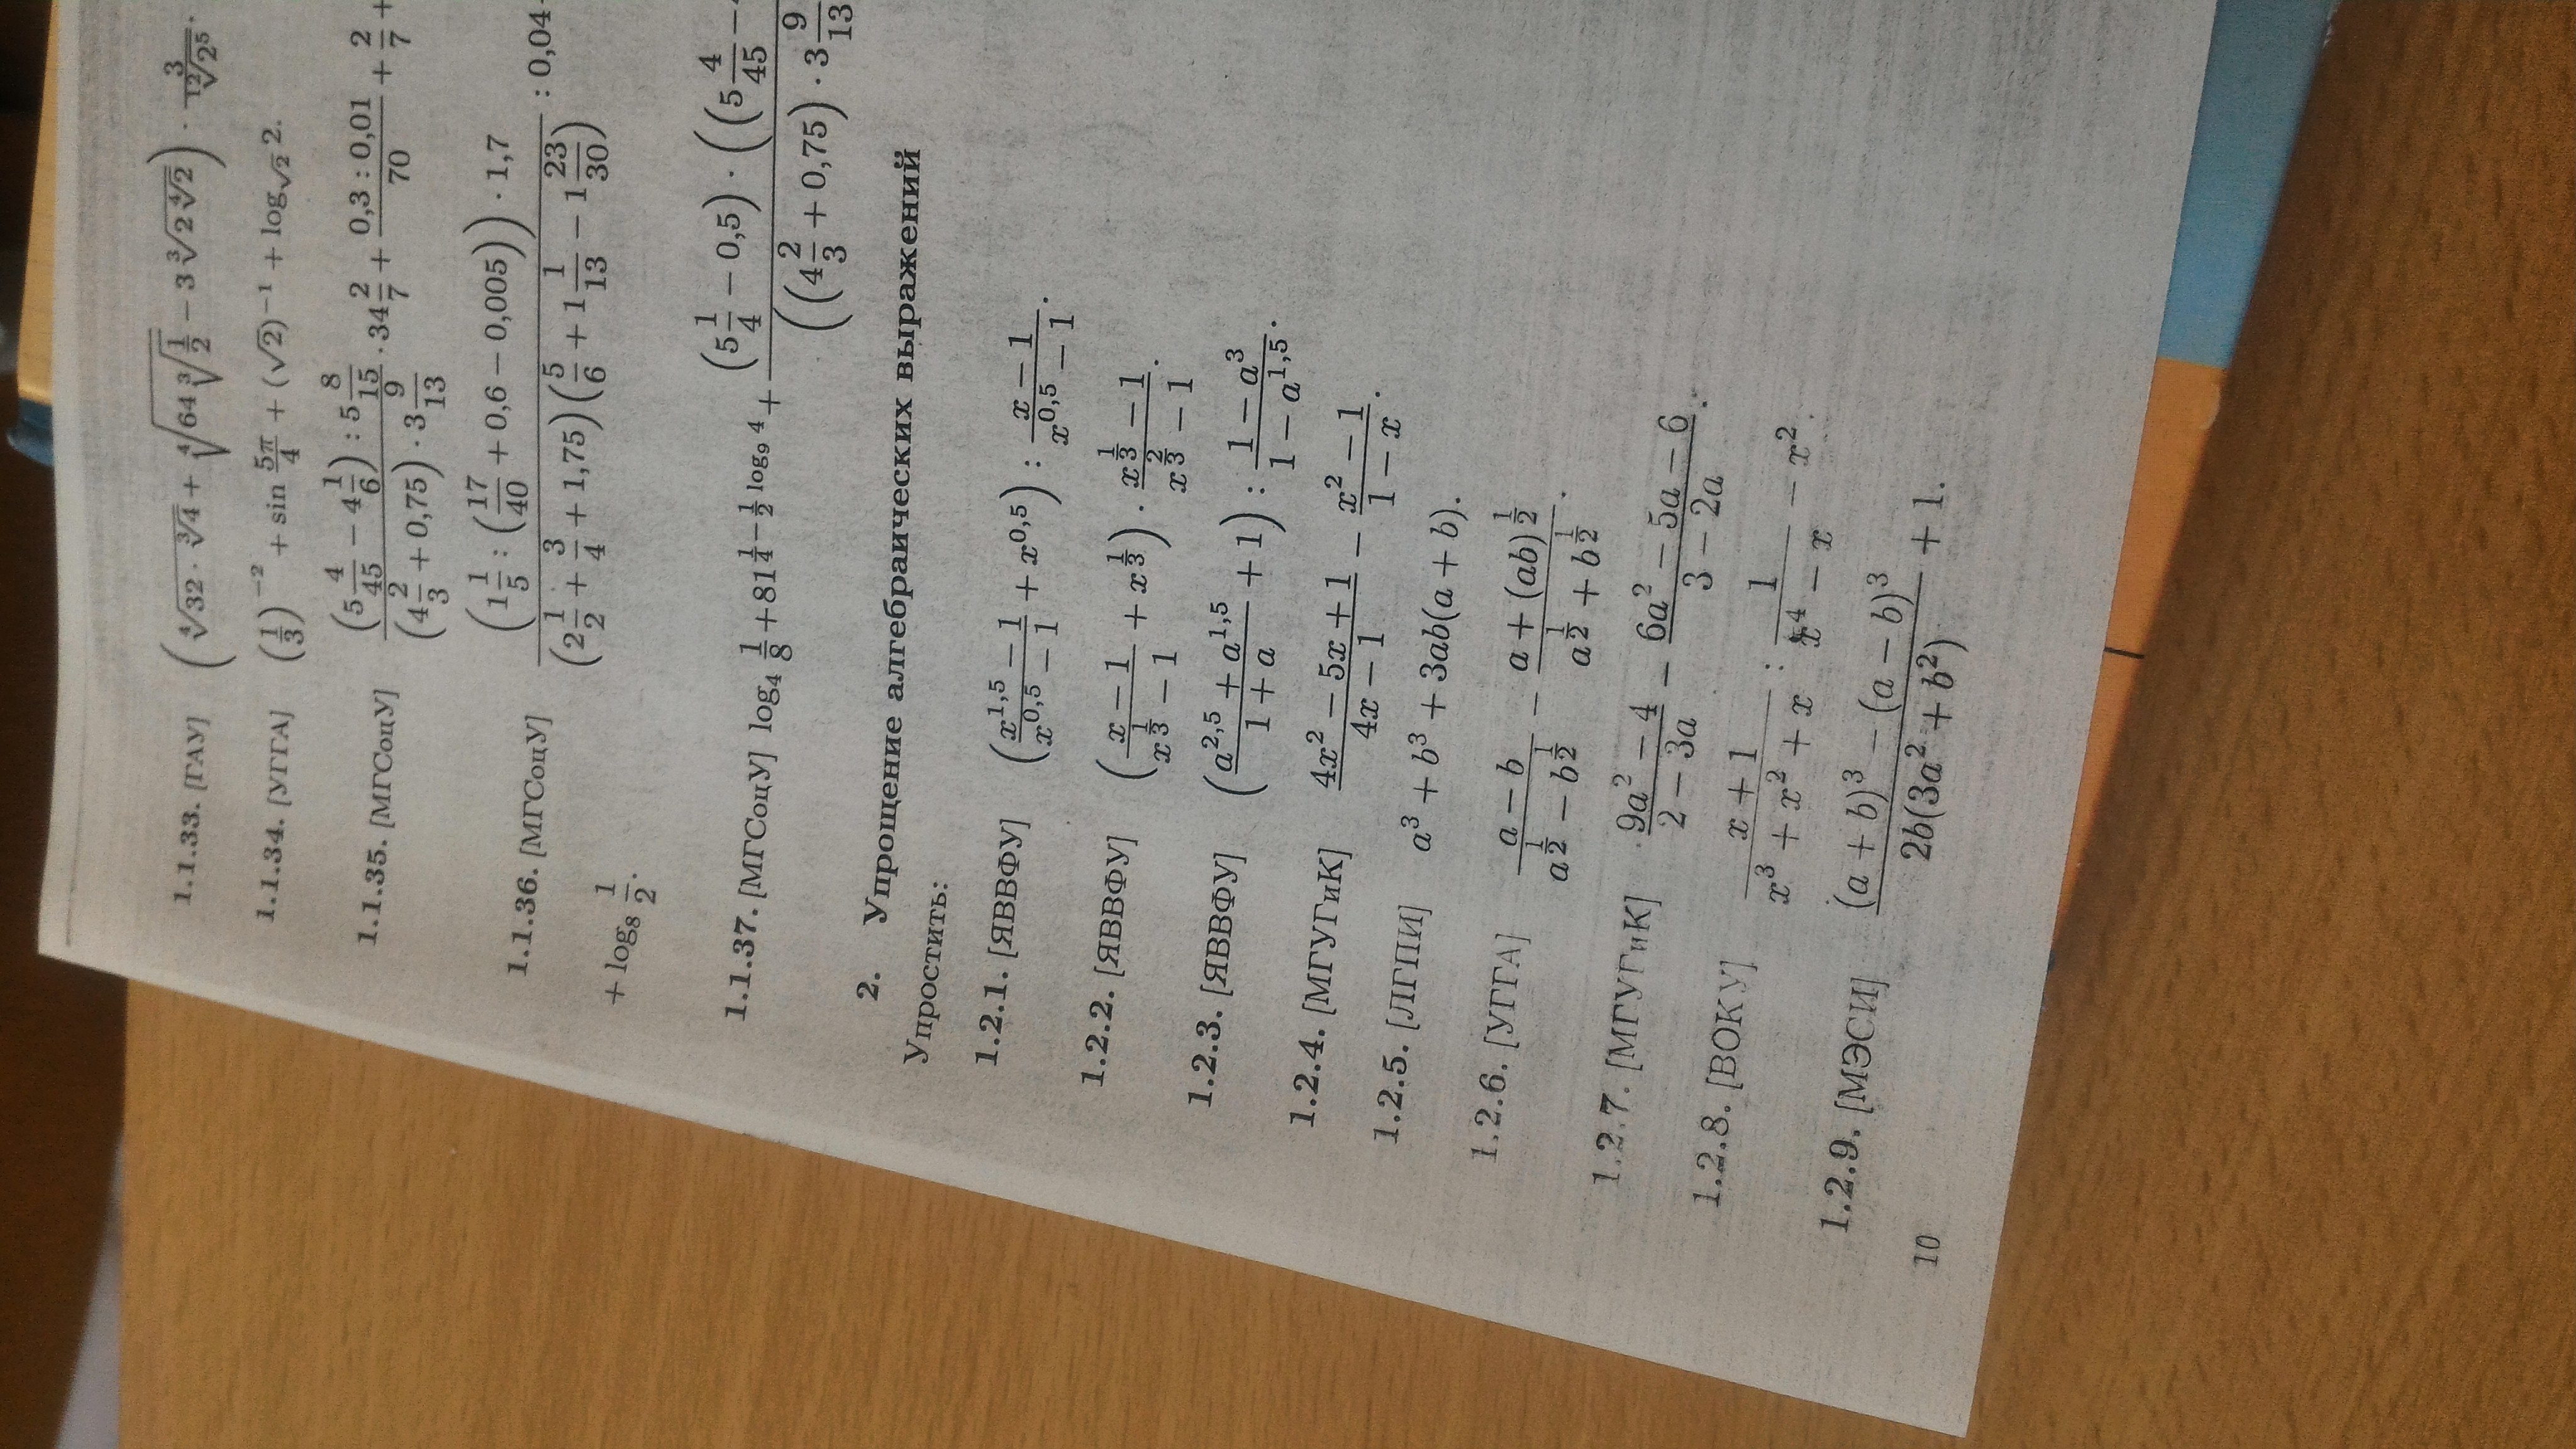 1.1.33. [ГАУ] (∜(32 · ∛4) + ∜(64 ∛(1/2)) − 3 ∛(2 ∜2)) · 3/¹²√(2⁵).
1.1.34. [УГГА] (1/3)⁻² + sin 5π/4 + (√2)⁻¹ + log_√2 2.
1.1.35. [МГСоцУ] ((5 4/45 − 4 1/6) : 5 8/15)/((4 2/3 + 0,75) · 3 9/13) · 34 2/7 + (0,3 : 0,01)/70 + 2/7 +
1.1.36. [МГСоцУ] ((1 1/5 : (17/40 + 0,6 − 0,005)) · 1,7)/((2 1/2 + 3/4 + 1,75)(5/6 + 1 1/13 − 1 23/30)) : 0,04
+ log₈ 1/2.
1.1.37. [МГСоцУ] log₄ 1/8 + 81^(1/4 − 1/2 log₉ 4) + ((5 1/4 − 0,5) · ((5 4/45 −)/((4 2/3 + 0,75) · 3 9/13
2. Упрощение алгебраических выражений
Упростить:
1.2.1. [ЯВВФУ] ((x^1,5 − 1)/(x^0,5 − 1) + x^0,5) : (x − 1)/(x^0,5 − 1).
1.2.2. [ЯВВФУ] ((x − 1)/(x^(1/3) − 1) + x^(1/3)) · (x^(1/3) − 1)/(x^(2/3) − 1).
1.2.3. [ЯВВФУ] ((a^2,5 + a^1,5)/(1 + a) + 1) : (1 − a³)/(1 − a^1,5).
1.2.4. [МГУГиК] (4x² − 5x + 1)/(4x − 1) − (x² − 1)/(1 − x).
1.2.5. [ЛГПИ] a³ + b³ + 3ab(a + b).
1.2.6. [УГГА] (a − b)/(a^(1/2) − b^(1/2)) − (a + (ab)^(1/2))/(a^(1/2) + b^(1/2)).
1.2.7. [МГУГиК] (9a² − 4)/(2 − 3a) − (6a² − 5a − 6)/(3 − 2a).
1.2.8. [ВОКУ] (x + 1)/(x³ + x² + x) : 1/(x⁴ − x) − x².
1.2.9. [МЭСИ] ((a + b)³ − (a − b)³)/(2b(3a² + b²)) + 1.
10